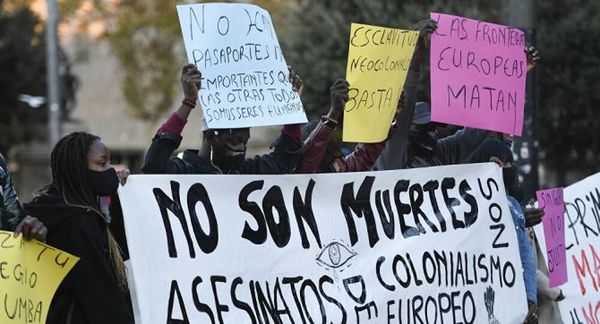 NO HAY
PASAPORTES MÁS
IMPORTENTES QUE
LAS OTRAS TODAS
SOMOS SERES HUMANOS
ESCLAVITUD
NEOCOLONIAL
BASTA
LAS FRONTERAS
EUROPEAS
MATAN
NO SON MUERTES
SON
ASESINATOS DE
COLONIALISMO
EUROPEO
EGIO
UMBA
PRIM